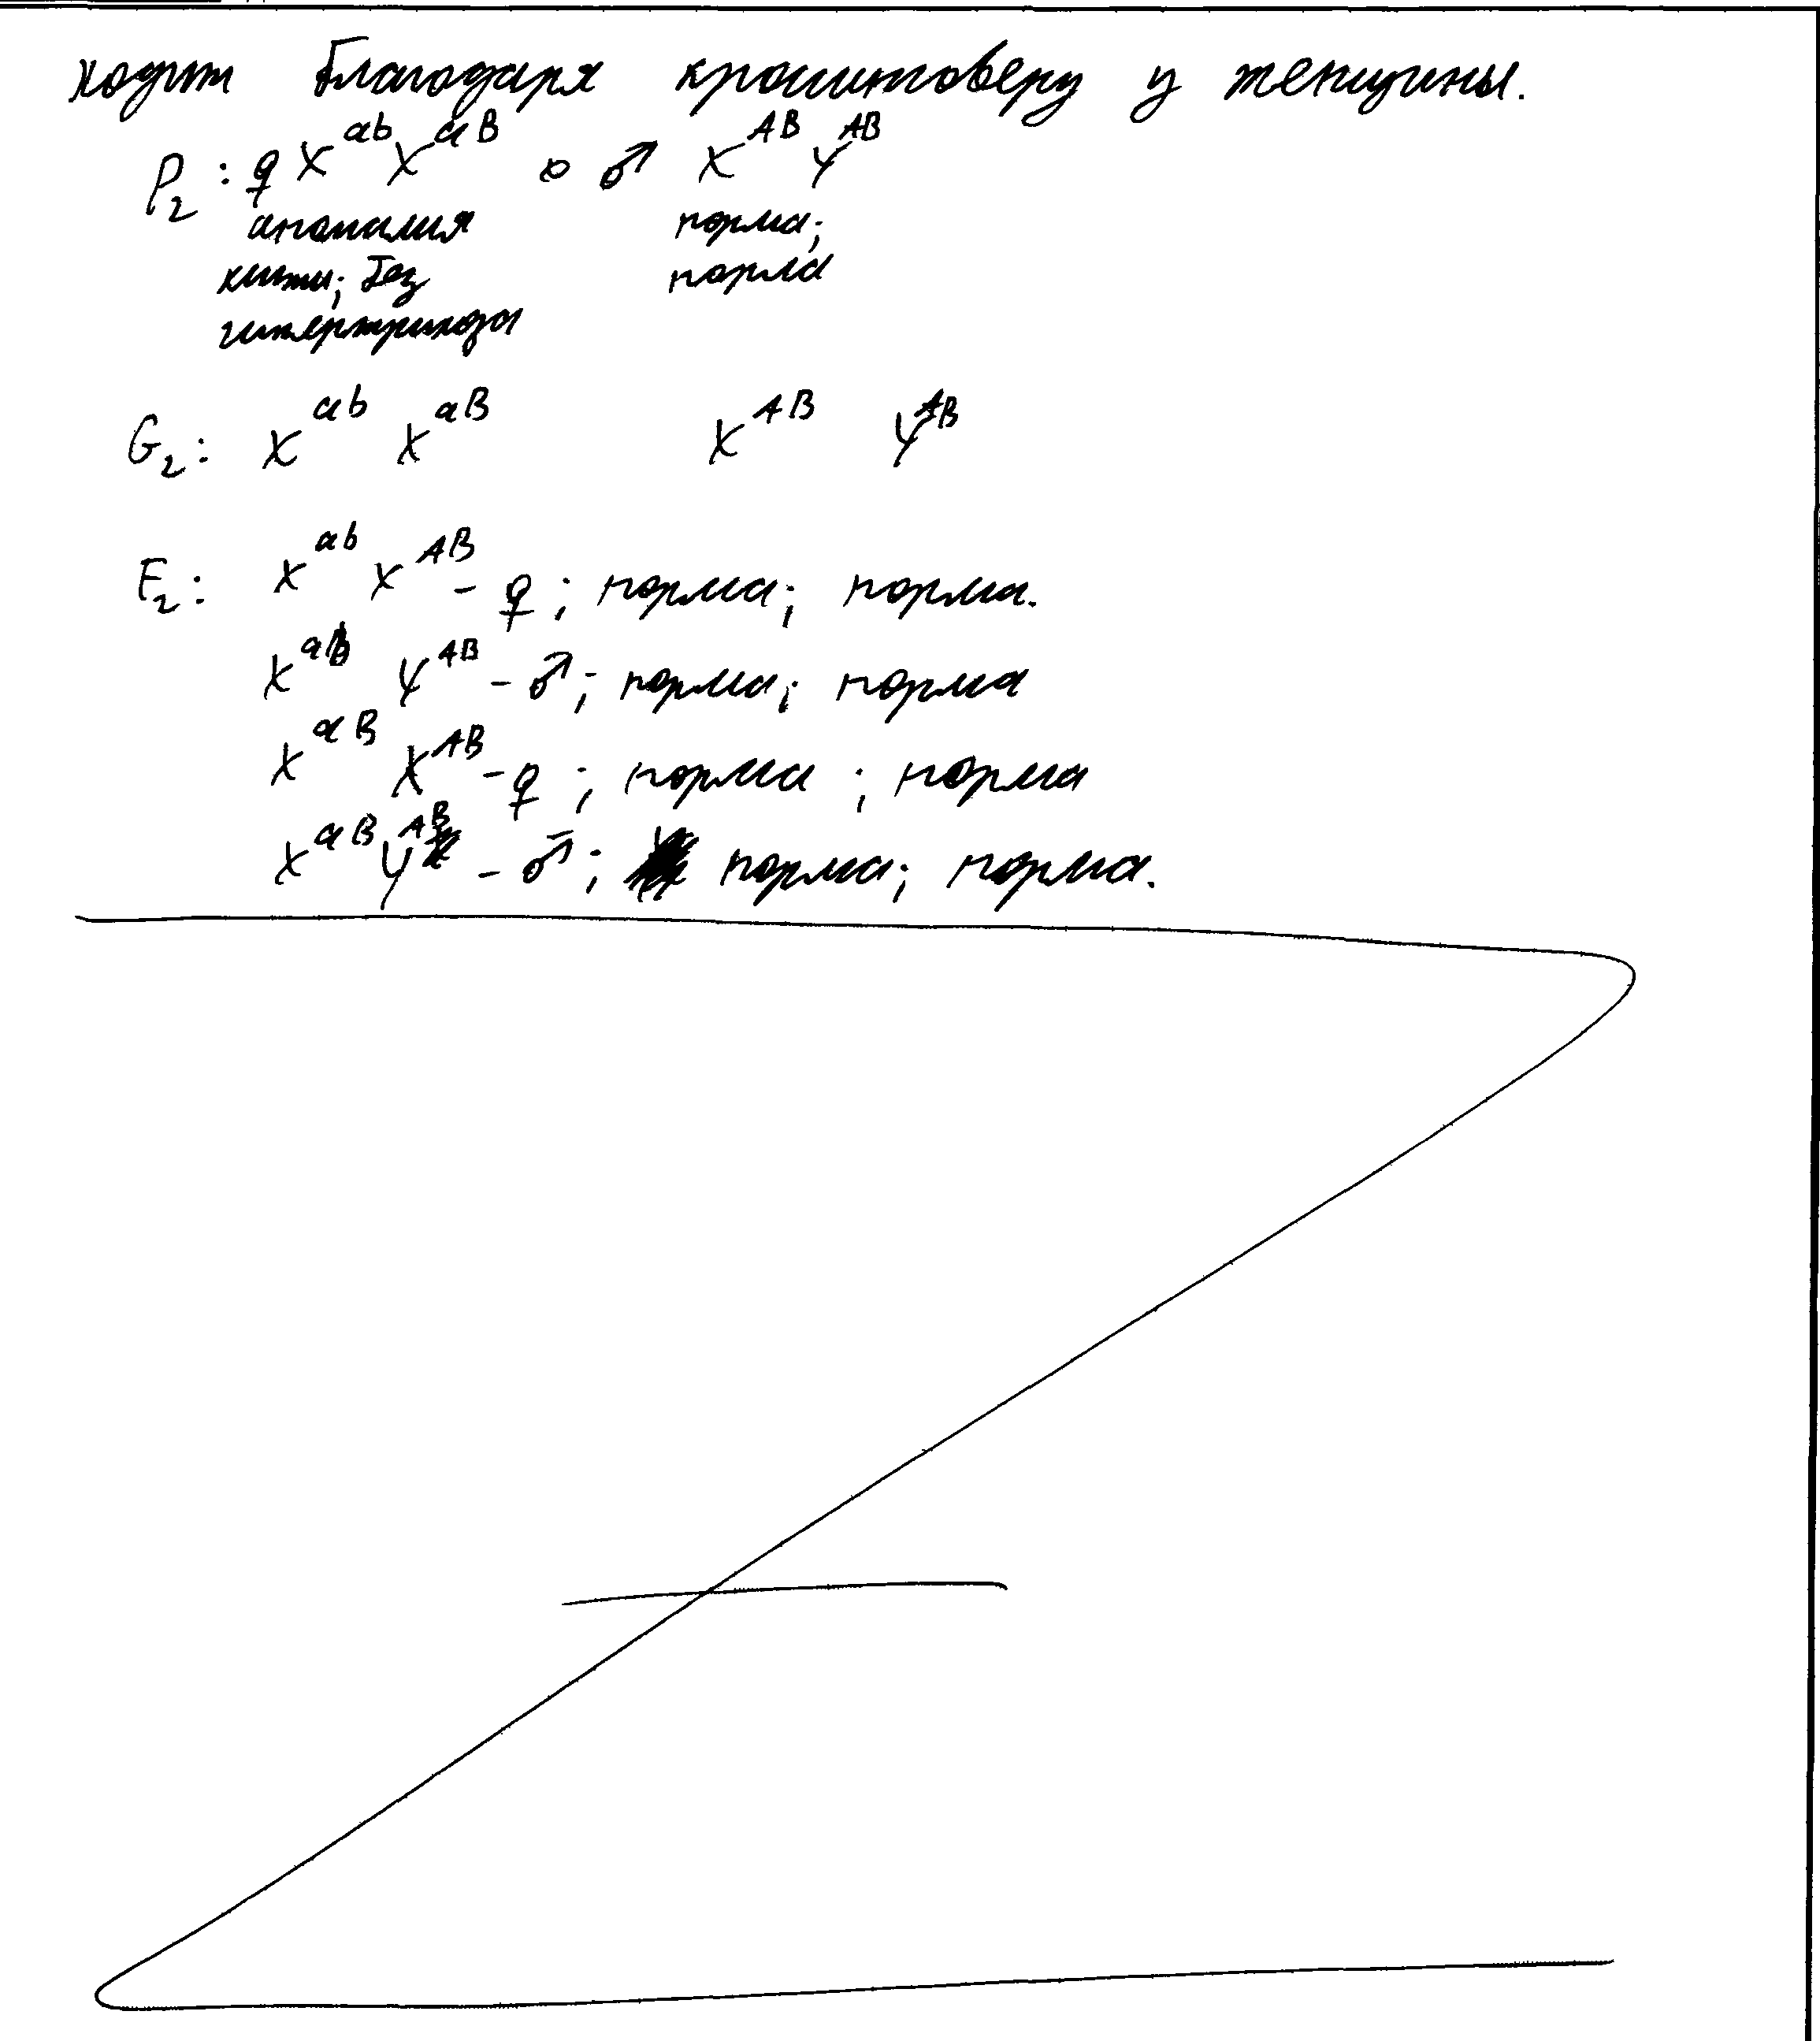 ходит благодаря кроссинговеру у женщины.
P₂: ♀ X^ab X^aB × ♂ X^AB Y^AB
аномалия норма;
кисти; без норма
гипертрихоза
G₂: X^ab X^aB X^AB Y^AB
F₂: X^ab X^AB - ♀; норма; норма.
X^ab Y^AB - ♂; норма; норма
X^aB X^AB - ♀; норма; норма
X^aB Y^AB - ♂; норма; норма.